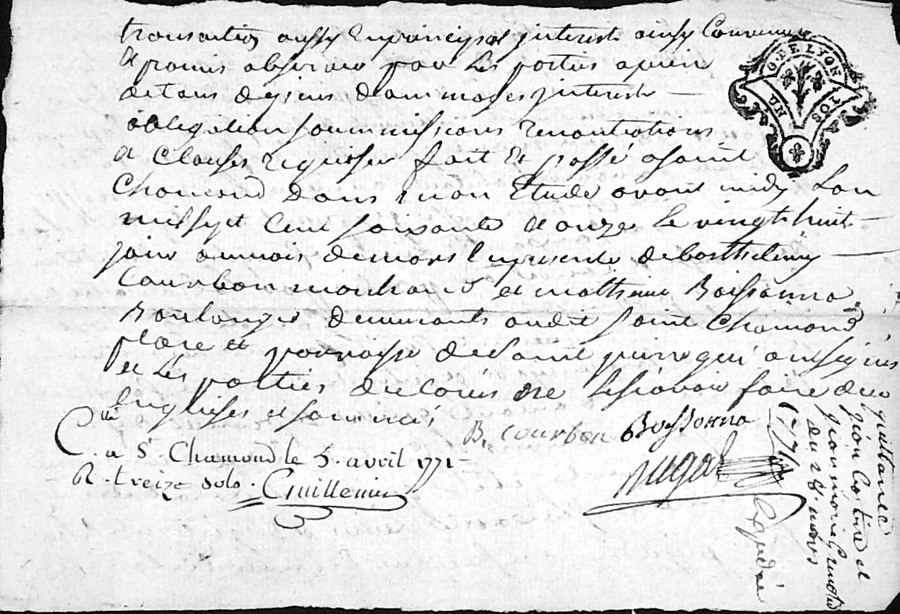 transaction aussy en principal interest ainsy Convenu
Et promis observer par Les parties a peine
de tous depens dommages interests
obligation soummissions renontiations
et Clauses requises fait Et passé a saint
Chamond Dans mon Etude avant midy Lan
mil sept Cent soixante et onze Le vingt huit
jour du mois de mars En presence de barthelemy
Courbon marchand et mathieu Boissonna
Boulanger demeurants audit saint Chamond
place et parroisse de saint pierre qui ont signés
et Les parties declarés ne sçavoir faire de ce
Enquises et sommées
B. Courbon Boissonna
C.lé a St. Chamond le 5. avril 1771
R. treize sols. Guillemin
GNE LYON
DU
SOLS
quittance
du 28. mars
1771
Expediée